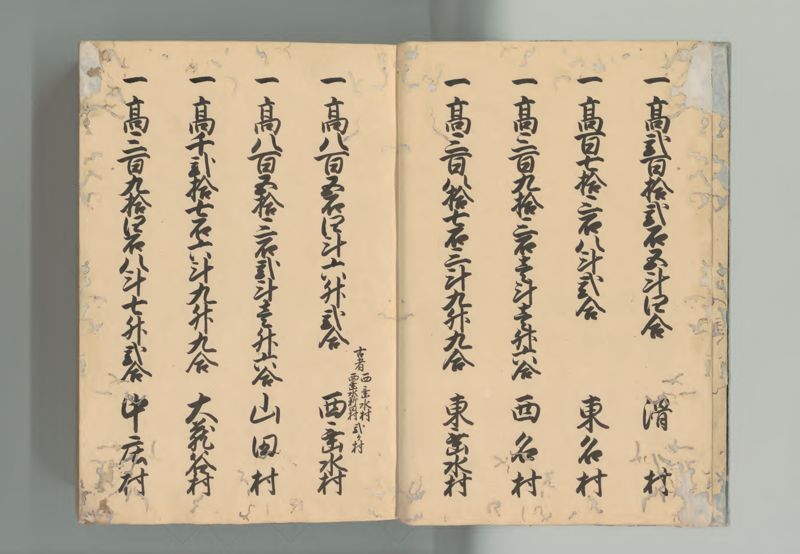 一高弐百拾弐石五斗四合 潽村
一高百七拾三石八斗弐合 東名村
一高三百九拾三石壱斗壱升六合 西名村
一高三百八拾七石三斗九升九合 東垂水村
一高八百五石四斗六升弐合 西垂水村
古者西垂水村
西垂水新村弐ヶ村
一高八百五拾三石弐斗壱升六合 山田村
一高千弐拾七石六斗九升九合 大蔵谷村
一高三百九拾四石八斗七升弐合 中庄村